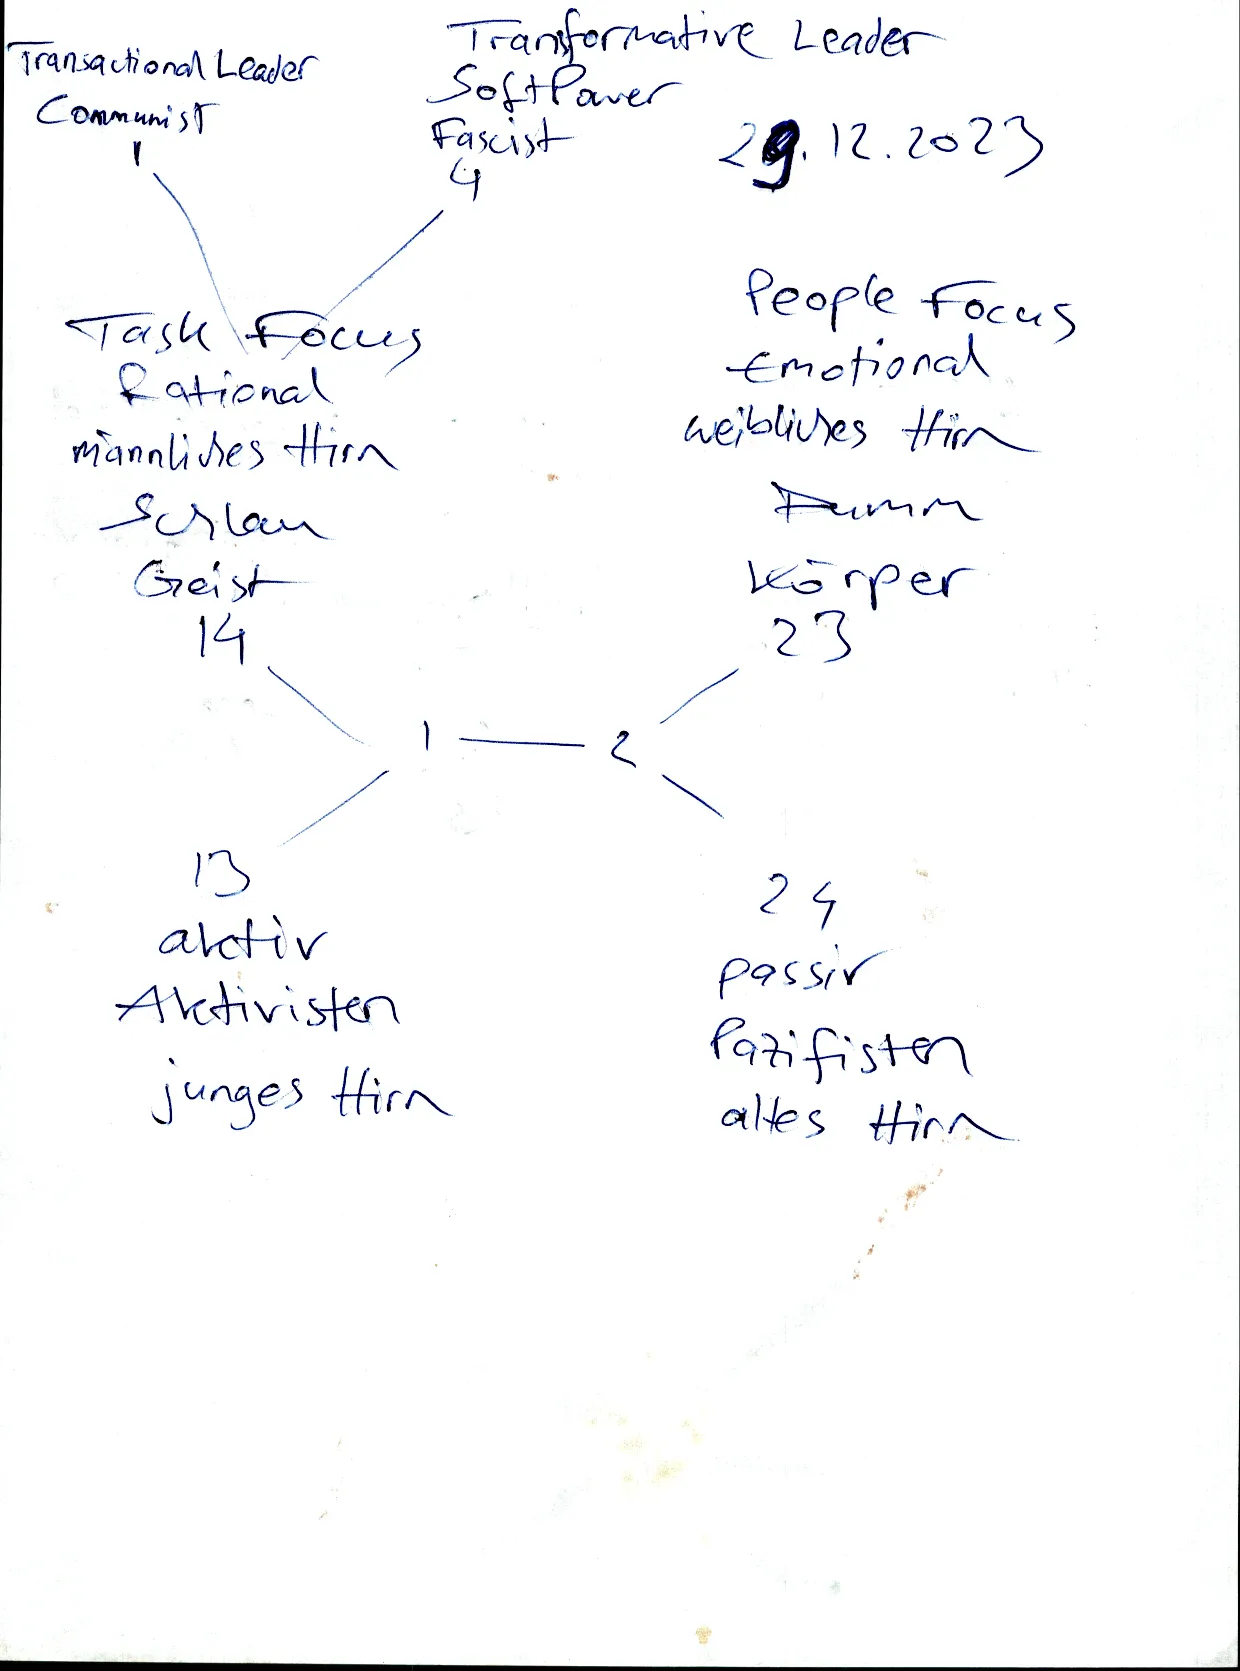 Transactional Leader
Communist
1
Transformative Leader
Soft Power
Fascist
4
29.12.2023
Task Focus
Rational
männliches Hirn
Schlau
Geist
14
People Focus
Emotional
weibliches Hirn
Dumm
Körper
23
1 — 2
13
aktiv
Aktivisten
junges Hirn
24
passiv
Pazifisten
altes Hirn